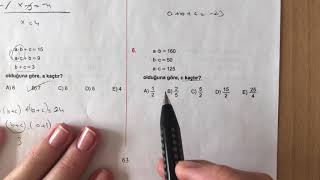 x = 4
a + b + c = -23
a·b + c = 15
a·c + b = 9
b + c = 3
olduğuna göre, a kaçtır?
B) 7 C) 6 D) 5 E) 4
(b+c) = 24
(b+c) · (a+1)
3
6.
a·b = 160
b·c = 50
a·c = 125
olduğuna göre, c kaçtır?
A) 1/2 B) 2/5 C) 5/2 D) 15/2 E) 25/4
63